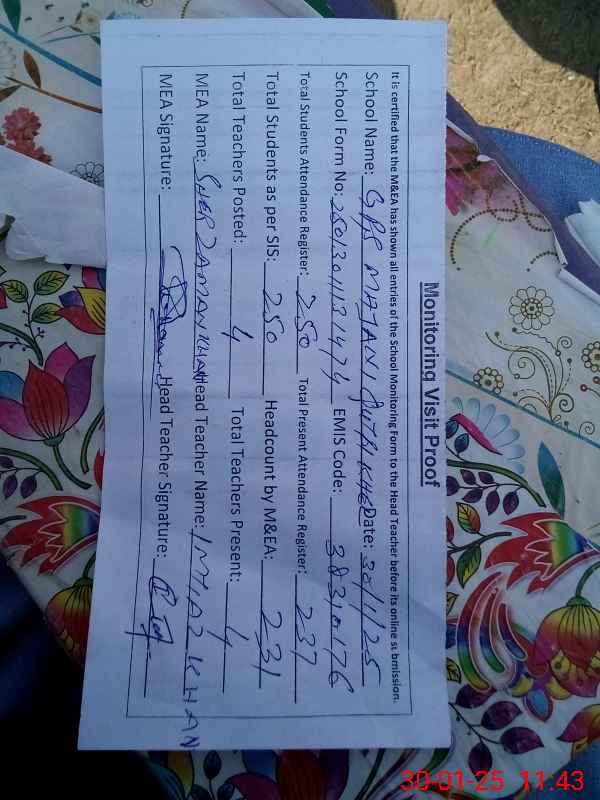 Monitoring Visit Proof
It is certified that the M&EA has shown all entries of the School Monitoring Form to the Head Teacher before its online submission.
School Name: GPS MAJANI QUTAB KHEL Date: 30/1/25
School Form No: 2501301131474 EMIS Code: 38310176
Total Students Attendance Register: 250 Total Present Attendance Register: 237
Total Students as per SIS: 250 Headcount by M&EA: 231
Total Teachers Posted: 4 Total Teachers Present: 4
MEA Name: SHER ZAMAN KHAN Head Teacher Name: IMTIAZ KHAN
MEA Signature: Head Teacher Signature:
30-01-25 11:43